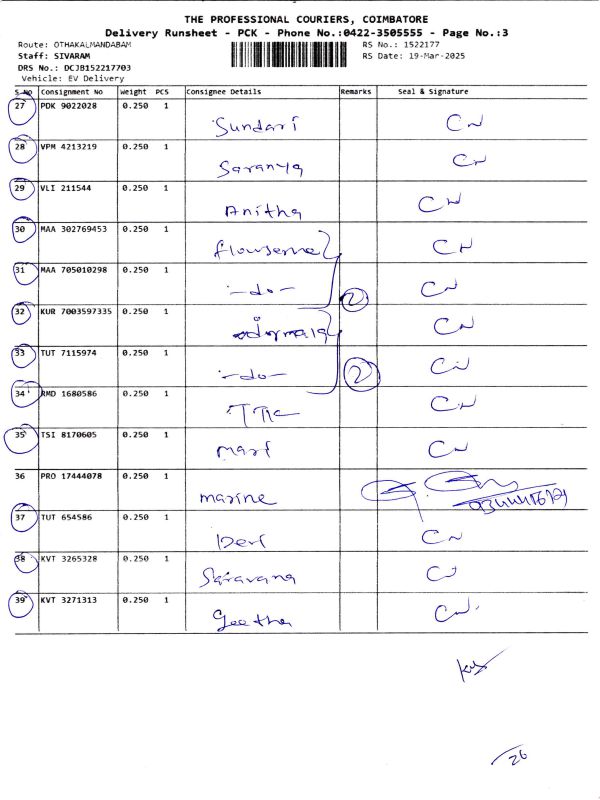 THE PROFESSIONAL COURIERS, COIMBATORE
Delivery Runsheet - PCK - Phone No.:0422-3505555 - Page No.:3
Route: OTHAKALMANDABAM RS No.: 1522177
Staff: SIVARAM RS Date: 19-Mar-2025
DRS No.: DCJB152217703
Vehicle: EV Delivery
S No Consignment No Weight PCS Consignee Details Remarks Seal & Signature
27 PDK 9022028 0.250 1 Sundari CN
28 VPM 4213219 0.250 1 Saranya CN
29 VLI 211544 0.250 1 Anitha CN
30 MAA 302769453 0.250 1 flowserve CN
31 MAA 705010298 0.250 1 -do- 2 CN
32 KUR 7003597335 0.250 1 CN
33 TUT 7115974 0.250 1 -do- 2 CN
34 RMD 1680586 0.250 1 CN
35 TSI 8170605 0.250 1 CN
36 PRO 17444078 0.250 1 marine
37 TUT 654586 0.250 1 CN
38 KVT 3265328 0.250 1 Saravana CN
39 KVT 3271313 0.250 1 Geetha CN
26